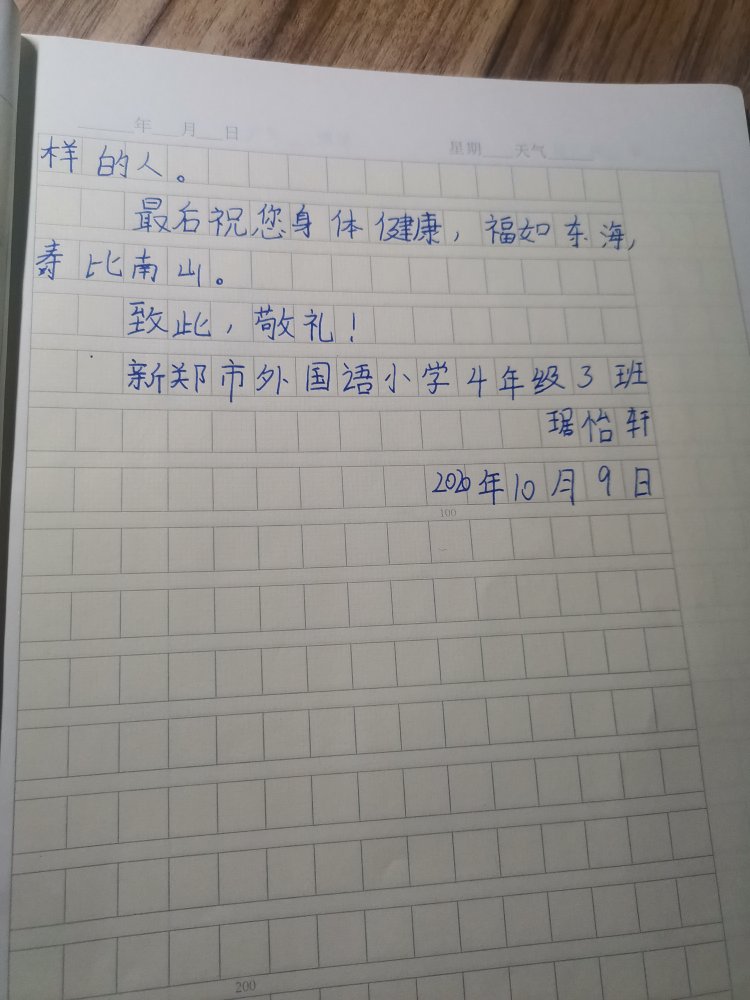 年 月 日 星期 天气
样的人。
最后祝您身体健康,福如东海,
寿比南山。
致此,敬礼!
新郑市外国语小学4年级3班
琚怡轩
2020年10月9日
100
200